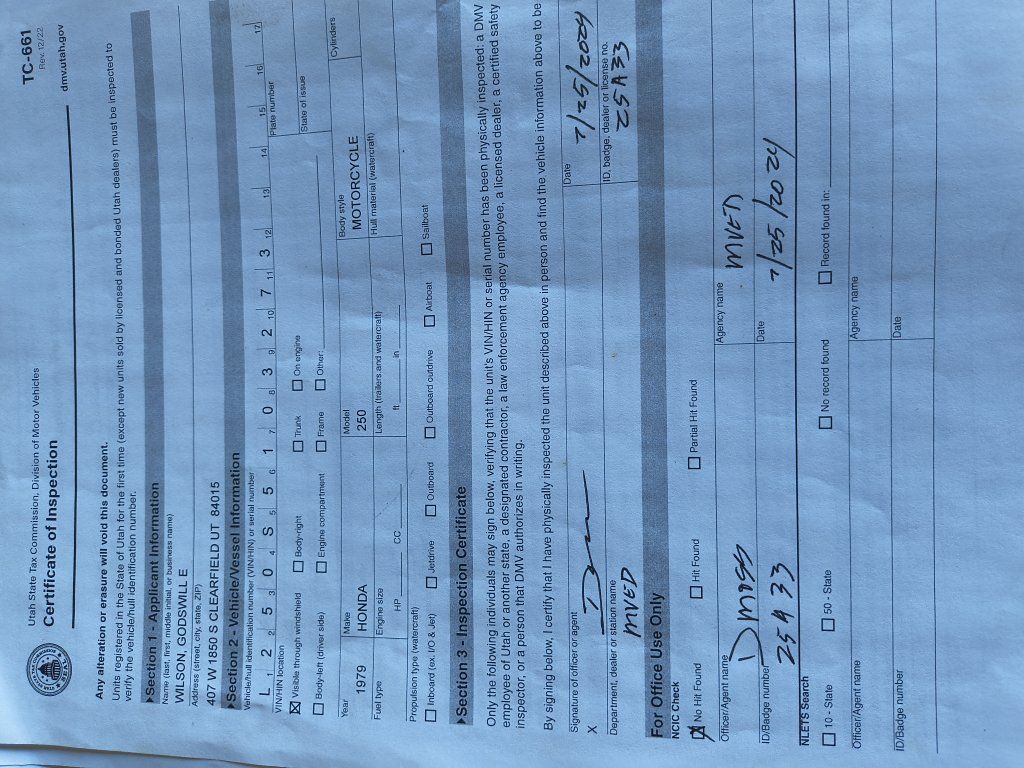 Utah State Tax Commission, Division of Motor Vehicles
Certificate of Inspection
TC-661
Rev. 12/22
dmv.utah.gov
Any alteration or erasure will void this document.
Units registered in the State of Utah for the first time (except new units sold by licensed and bonded Utah dealers) must be inspected to
verify the vehicle/hull identification number.
Section 1 - Applicant Information
Name (last, first, middle initial, or business name)
WILSON, GODSWILL E
Address (street, city, state, ZIP)
407 W 1850 S CLEARFIELD UT 84015
Section 2 - Vehicle/Vessel Information
Vehicle/hull identification number (VIN/HIN) or serial number
L 2 5 3 0 S 5 1 0 3 2 7 3
1 2 3 4 5 6 7 8 9 10 11 12 13 14 15 16 17
Plate number
VIN/HIN location
State of issue
Visible through windshield Body-right Trunk On engine
Body-left (driver side) Engine compartment Frame Other:
Year Make Model Body style Cylinders
1979 HONDA 250 MOTORCYCLE
Fuel type Engine size Length (trailers and watercraft) Hull material (watercraft)
HP CC ft in
Propulsion type (watercraft)
Inboard (ex. I/O & Jet) Jetdrive Outboard Outboard outdrive Airboat Sailboat
Section 3 - Inspection Certificate
Only the following individuals may sign below, verifying that the unit's VIN/HIN or serial number has been physically inspected: a DMV
employee of Utah or another state, a designated contractor, a law enforcement agency employee, a licensed dealer, a certified safety
inspector, or a person that DMV authorizes in writing.
By signing below, I certify that I have physically inspected the unit described above in person and find the vehicle information above to be
Signature of officer or agent Date
X 7/25/2024
Department, dealer or station name ID, badge, dealer or license no.
MVED 25A33
For Office Use Only
NCIC Check
No Hit Found Hit Found Partial Hit Found
Officer/Agent name Agency name
D moss MVED
ID/Badge number Date
25A33 7/25/2024
NLETS Search
10 - State 50 - State No record found Record found in:
Officer/Agent name Agency name
ID/Badge number Date